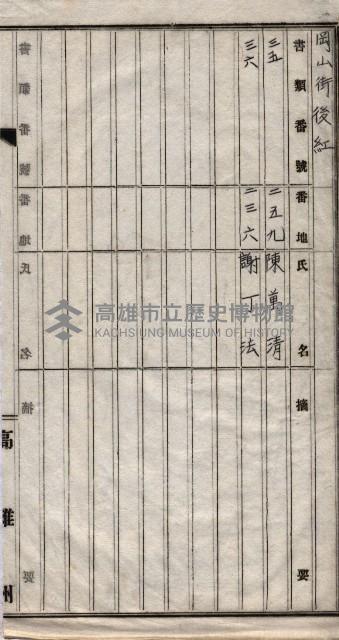 岡山街後紅
書類番號 番地 氏名 摘要
三五 二五九 陳萬清
三六 二三六 謝丁法
高雄州
高雄市立歷史博物館
KAOHSIUNG MUSEUM OF HISTORY